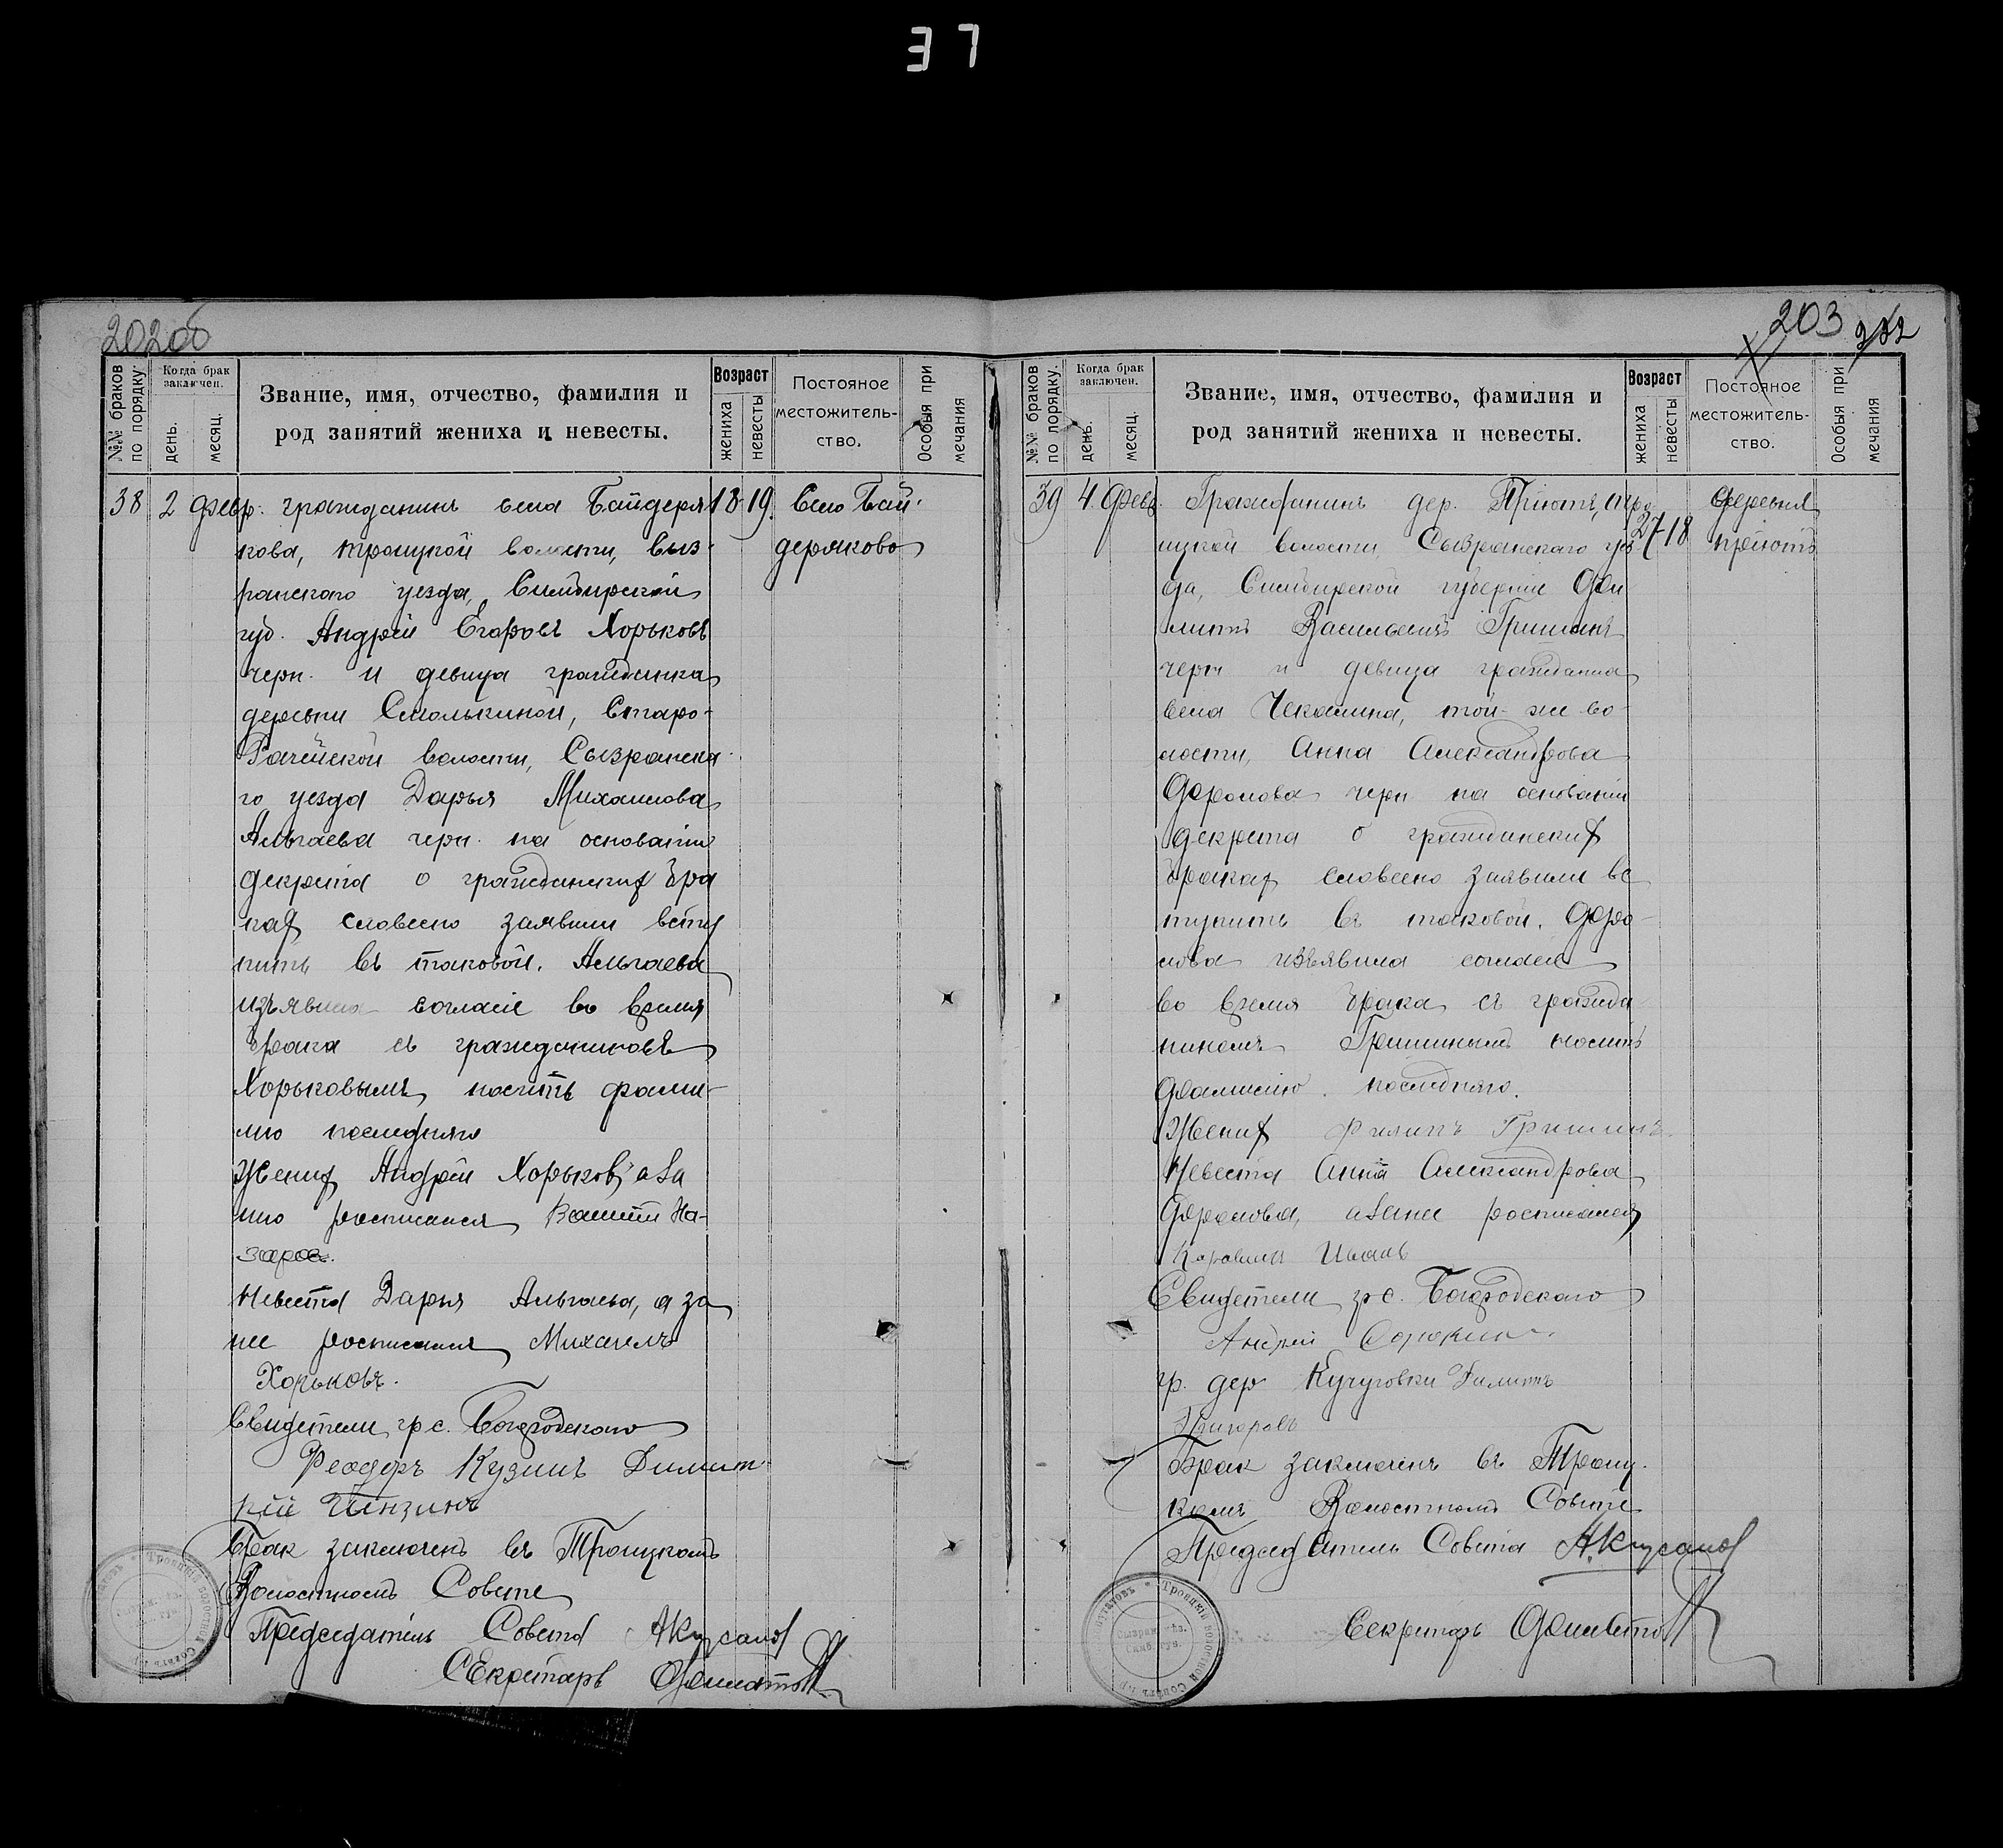 37
202об
№№ браков по порядку.
Когда брак заключен.
день.
месяц.
Звание, имя, отчество, фамилия и
род занятий жениха и невесты.
Возраст
жениха
невесты
Постояное
местожитель-
ство.
Особыя при
мечания
38 2 февр. гражданинъ села Байдеря 18 19. Село Бай-
кова, троицкой волости, Сыз- деряково
ранского уезда, Симбирской
губ. Андрей Егоровъ Хорьковъ
черн. и девица гражданка
деревни Смолькиной, Старо-
Рачейской волости, Сызранска-
го уезда Дарья Михайлова
Альгаева черн. на основании
декрета о гражданских бра
ках словесно заявили всту
пить въ таковой. Альгаева
изъявила согласие во время
брака съ гражданиномъ
Хорьковымъ носить фами-
лию последняго
Жених Андрей Хорьков, а за
него росписался На-
заров.
Невеста Дарья Альгаева, а за
нее росписался Михаилъ
Хорьковъ.
Свидетели гр с. Богородского
Феодоръ Кузинъ Димит
рий
Брак заключенъ въ Троицкомъ
Волостномъ Совете
Председатель Совета
Секретарь
203
202
№№ браков по порядку.
Когда брак заключен.
день.
месяц.
Звание, имя, отчество, фамилия и
род занятий жениха и невесты.
Возраст
жениха
невесты
Постояное
местожитель-
ство.
Особыя при
мечания
39 4 Февр. Гражданинъ дер. Приютъ, тро деревня
ицкой волости, Сызранского уез 27 18 приютъ
да, Симбирской губернии Фи
липпъ Васильевъ Гришинъ
черн и девица гражданка
села Чекалина, той-же во-
лости, Анна Александрова
Фролова черн на основании
декрета о гражданских
браках словесно заявили вс
тупить въ таковой. Фро-
лова изъявила согласие
во время брака съ гражда
ниномъ Гришинымъ носить
фамилию последняго.
Жених Филипъ Гришинъ
Невеста Анна Александрова
Фролова, а за нее росписался
Иванъ
Свидетели гр с. Богородского
Андрей Сорокин
гр. дер Кучуговки
Брак заключенъ въ Троиц-
комъ Волостномъ Совете
Председатель Совета
Секретарь